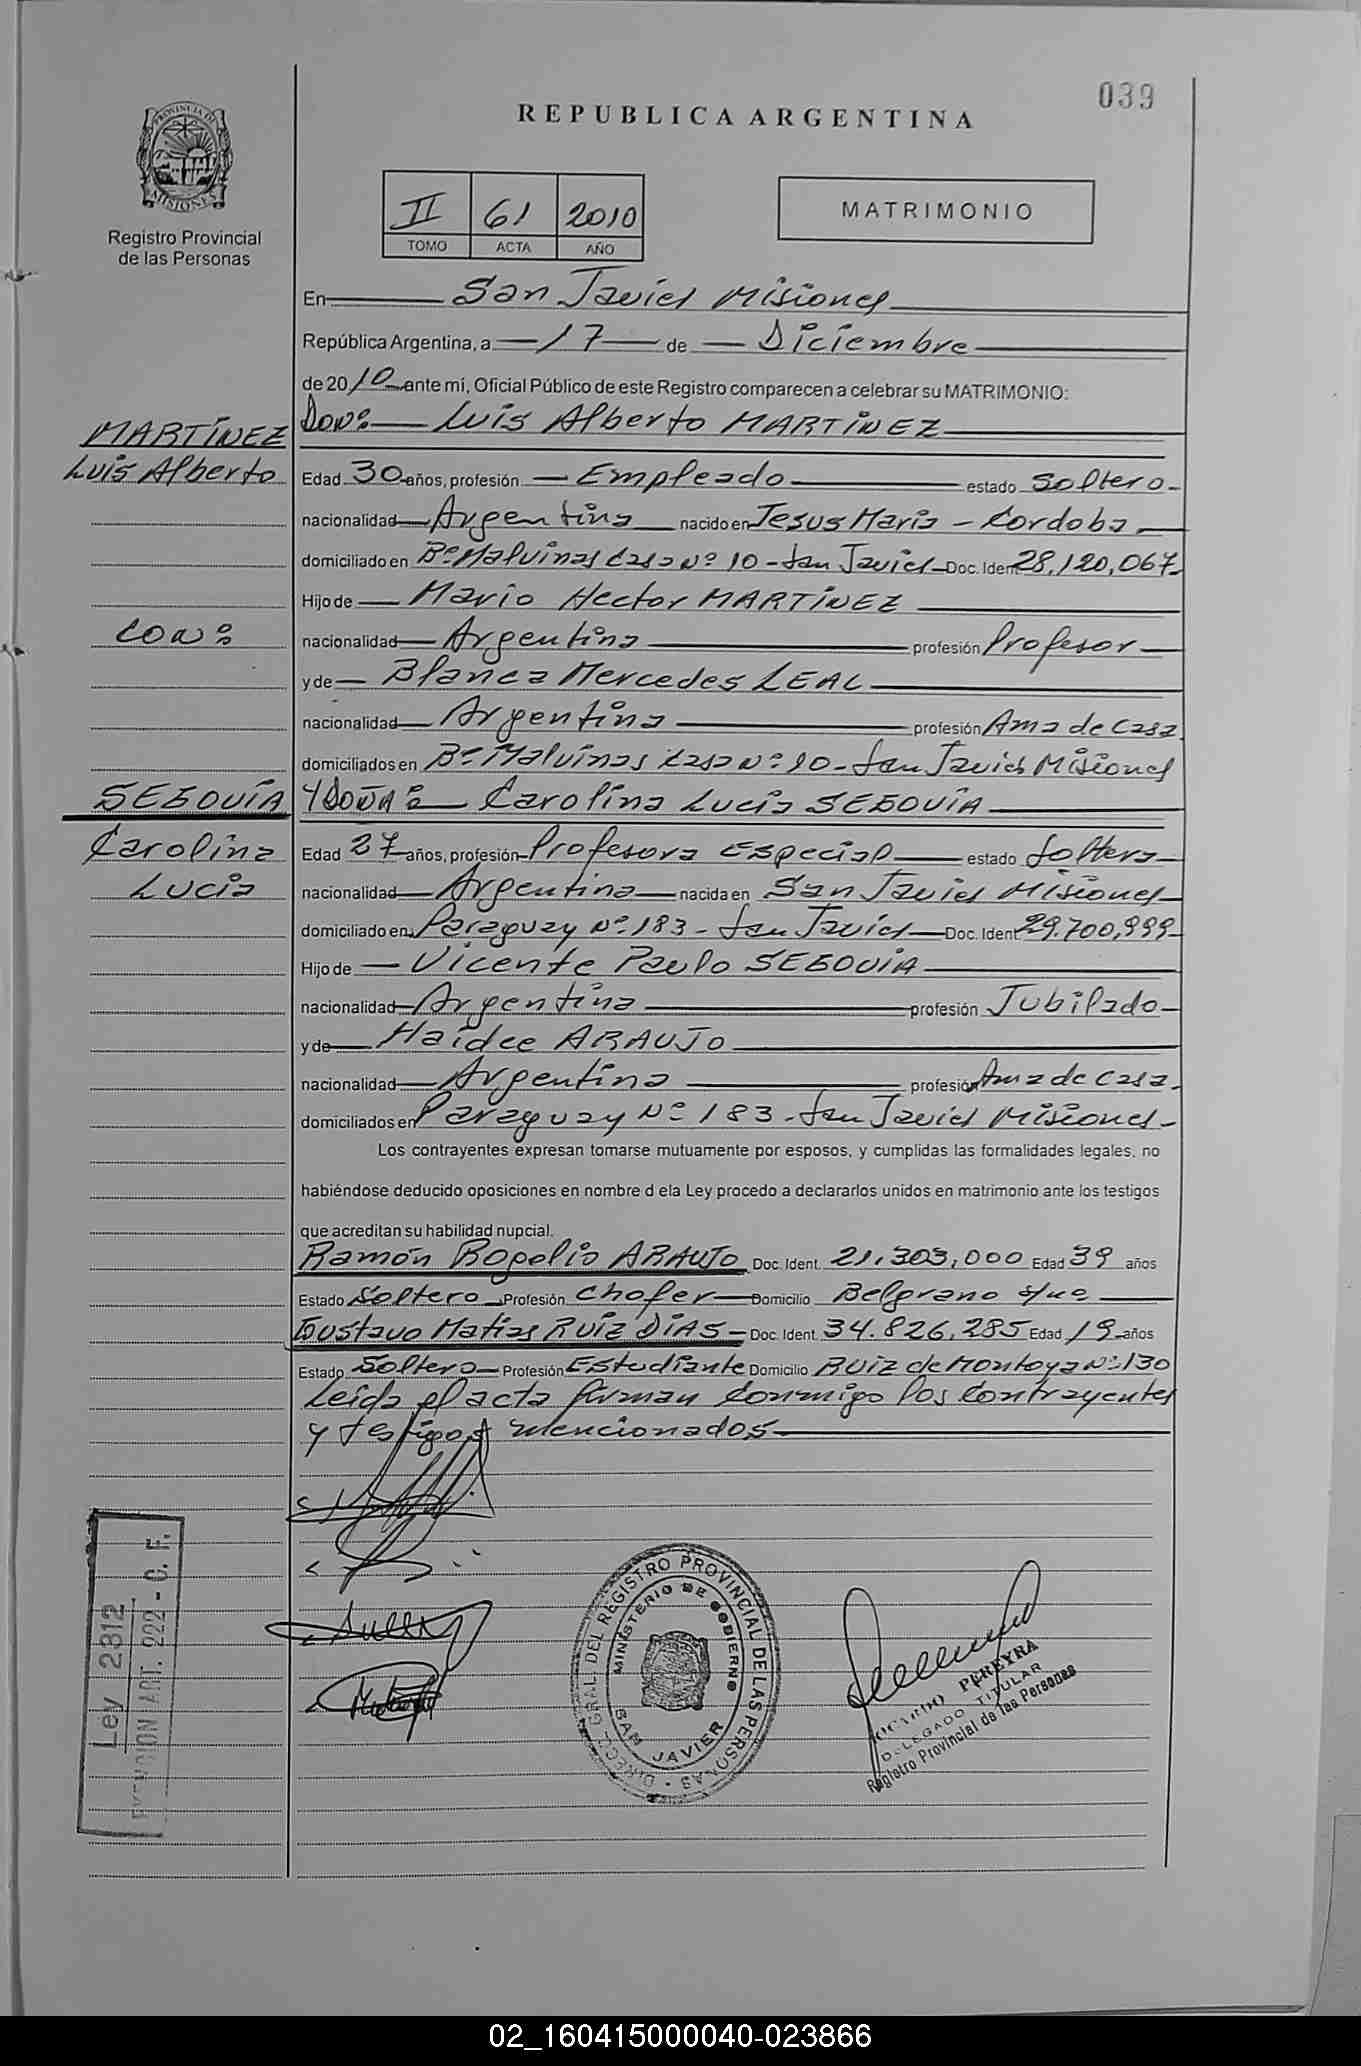 039
REPUBLICA ARGENTINA
PROVINCIA DE
MISIONES
Registro Provincial
de las Personas
II 61 2010
TOMO ACTA AÑO
MATRIMONIO
En San Javier Misiones
República Argentina, a 17 de Diciembre
de 2010 ante mi, Oficial Público de este Registro comparecen a celebrar su MATRIMONIO:
MARTÍNEZ
Luis Alberto
Don: Luis Alberto MARTÍNEZ
Edad 30 años, profesión Empleado estado Soltero
nacionalidad Argentina nacido en Jesus Maria - Cordoba
domiciliado en Bº Malvinas Casa Nº 10 - San Javier Doc. Ident 28.120.067
Hijo de Mario Hector MARTÍNEZ
con:
nacionalidad Argentina profesión Profesor
y de Blanca Mercedes LEAL
nacionalidad Argentina profesión Ama de Casa
domiciliados en Bº Malvinas Casa Nº 10 - San Javier Misiones
SEGOVIA
Carolina
Lucia
Y DOÑA: Carolina Lucia SEGOVIA
Edad 27 años, profesión Profesora Especial estado Soltera
nacionalidad Argentina nacida en San Javier Misiones
domiciliado en Paraguay Nº 183 - San Javier Doc. Ident 29.700.999
Hijo de Vicente Paulo SEGOVIA
nacionalidad Argentina profesión Jubilado
y de Haidee ARAUJO
nacionalidad Argentina profesión Ama de casa.
domiciliados en Paraguay Nº 183 - San Javier Misiones
Los contrayentes expresan tomarse mutuamente por esposos, y cumplidas las formalidades legales, no
habiéndose deducido oposiciones en nombre d ela Ley procedo a declararlos unidos en matrimonio ante los testigos
que acreditan su habilidad nupcial.
Ramón Rogelio ARAUJO Doc. Ident. 21.303.000 Edad 39 años
Estado Soltero Profesión Chofer Domicilio Belgrano s/nº
Gustavo Matias RUIZ DIAS Doc. Ident. 34.826.285 Edad 19 años
Estado Soltero Profesión Estudiante Domicilio Ruiz de Montoya Nº 130
Leida el acta firman conmigo los contrayentes
y testigos mencionados
Ley 2312
EXENCION ART. 222 - C. F.
DIREC. GRAL. DEL REGISTRO PROVINCIAL DE LAS PERSONAS
MINISTERIO DE GOBIERNO
SAN JAVIER
PEREYRA
DELEGADO TITULAR
Registro Provincial de las Personas
02_160415000040-023866